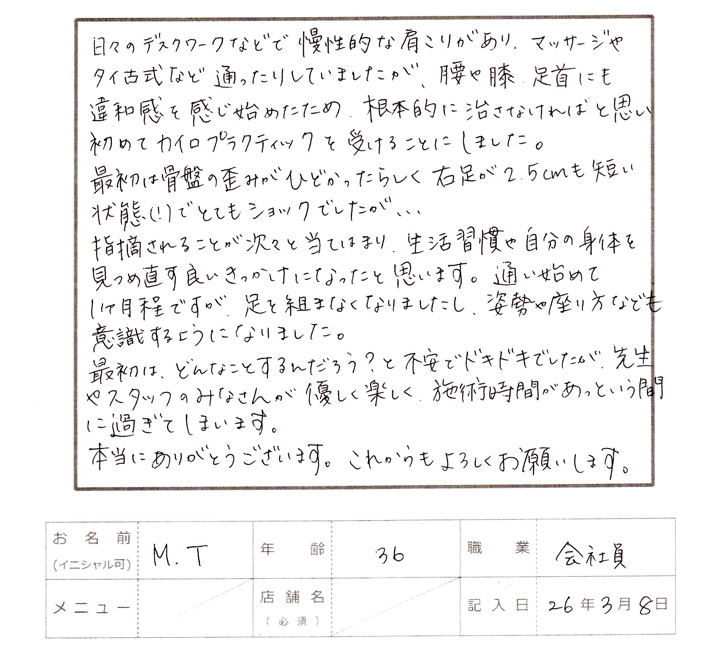 日々のデスクワークなどで慢性的な肩こりがあり、マッサージや
タイ古式など通ったりしていましたが、腰や膝、足首にも
違和感を感じ始めたため、根本的に治さなければと思い
初めてカイロプラクティックを受けることにしました。
最初は骨盤の歪みがひどかったらしく右足が2.5cmも短い
状態(!)でとてもショックでしたが、、、
指摘されることが次々と当てはまり、生活習慣や自分の身体を
見つめ直す良いきっかけになったと思います。通い始めて
1ヶ月程ですが、足を組まなくなりましたし、姿勢や座り方なども
意識するようになりました。
最初は、どんなことするんだろう?と不安でドキドキでしたが、先生
やスタッフのみなさんが優しく楽しく、施術時間があっという間
に過ぎてしまいます。
本当にありがとうございます。これからもよろしくお願いします。
お名前 (イニシャル可) M.T 年齢 36 職業 会社員
メニュー 店舗名 (必須) 記入日 26年3月8日